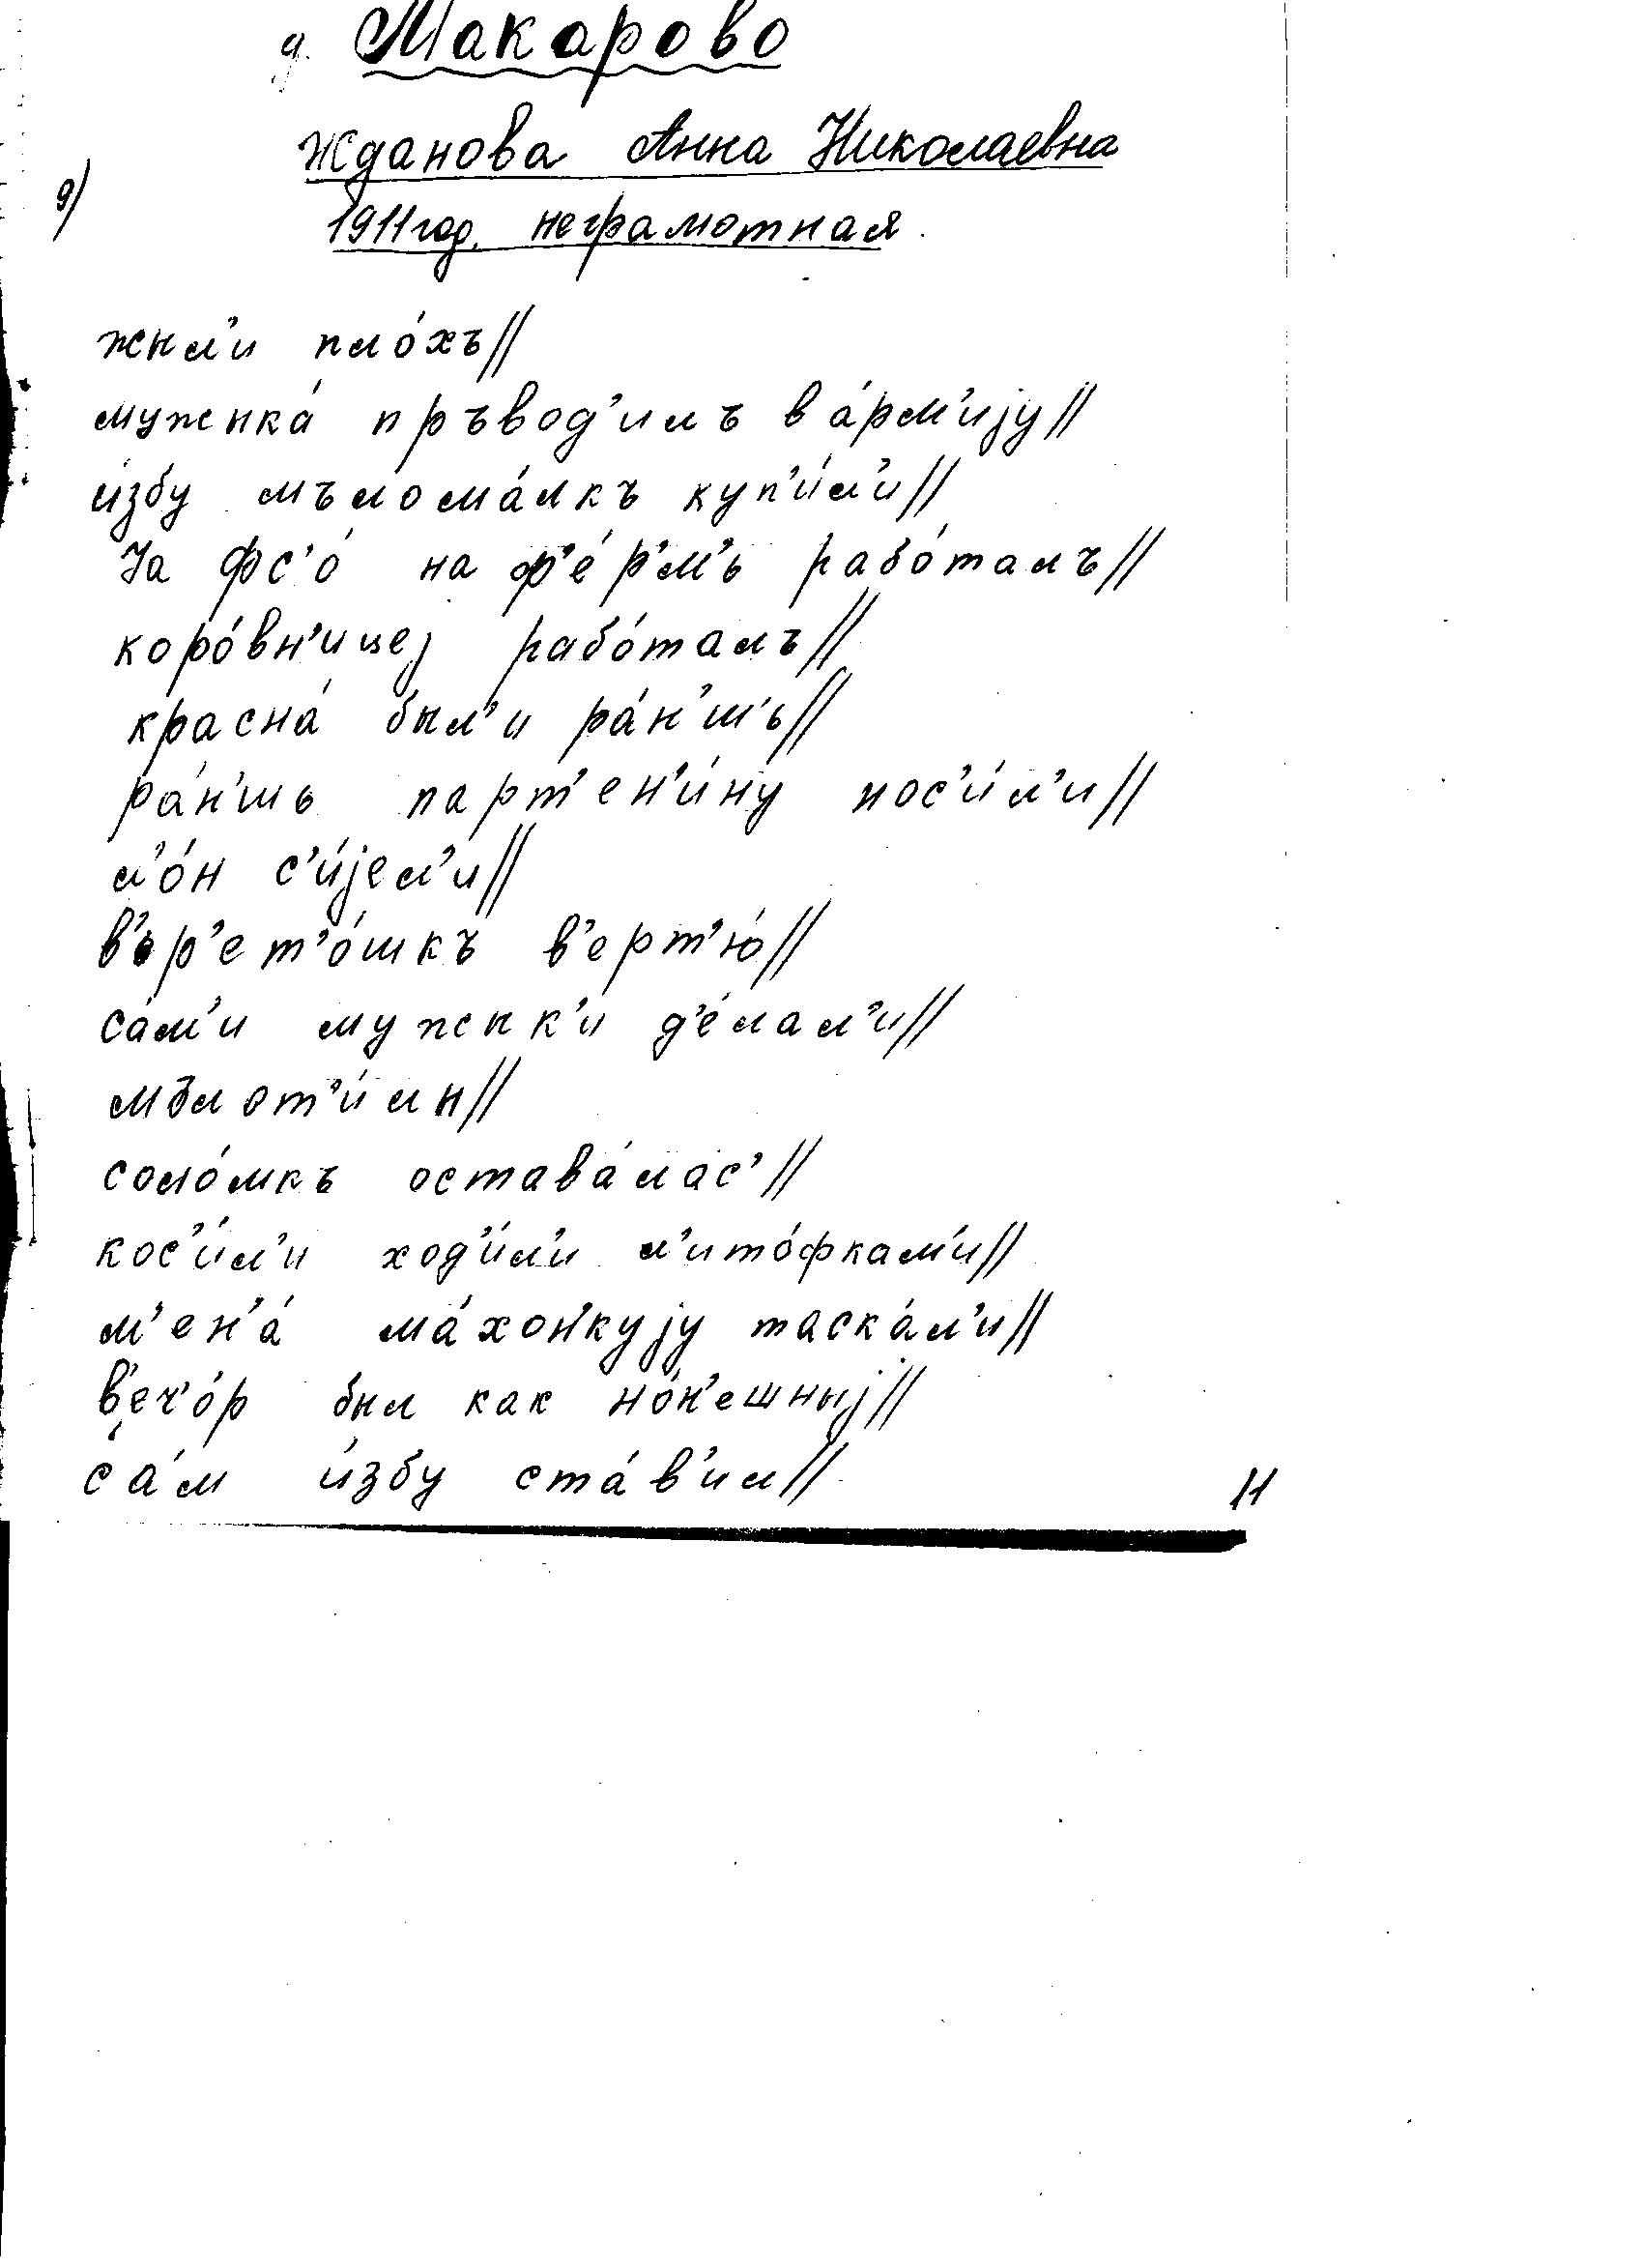 д. Макарово
Жданова Анна Николаевна
9)
1911 год. неграмотная.
жыл'и пло́хъ//
мужыка́ пръвод'илъ в а́рм'иjу//
и́збу мъломáлкъ куп'и́л'и//
jа фс'о́ на ф'е́р'м'ь рабо́талъ//
коро́вн'ицеj рабо́талъ//
красна́ был'и ра́н'шь//
ра́н'шь парт'ен'и́ну нос'и́л'и//
л'о́н с'и́jел'и//
в'ьр'ет'о́шкъ в'ерт'ю́//
са́м'и мужык'и́ д'е́лал'и//
мълот'и́лн//
соло́мкъ остава́лас'//
кос'и́л'и ход'и́л'и л'ито́фкам'и//
м'ен'а́ ма́хон'куjу таска́л'и//
в'еч'о́р был как но́н'ешныj//
са́м и́збу ста́в'ил//
11